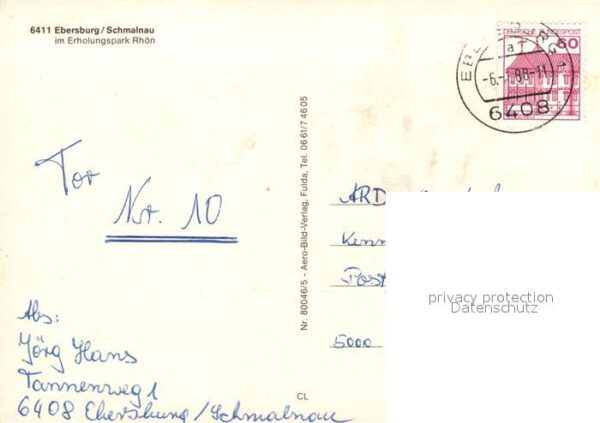 6411 Ebersburg/Schmalnau
im Erholungspark Rhön
DEUTSCHE BUNDESPOST
60
a
-6.-1.88-11
6408
Tor
Nr. 10
Nr. 80046/5 - Aero-Bild-Verlag, Fulda, Tel. 06 61/7 46 05
ARD
Kenn
Post
5000
privacy protection
Datenschutz
Abs:
Jörg Hans
Tannenweg 1
6408 Ebersburg/Schmalnau
CL